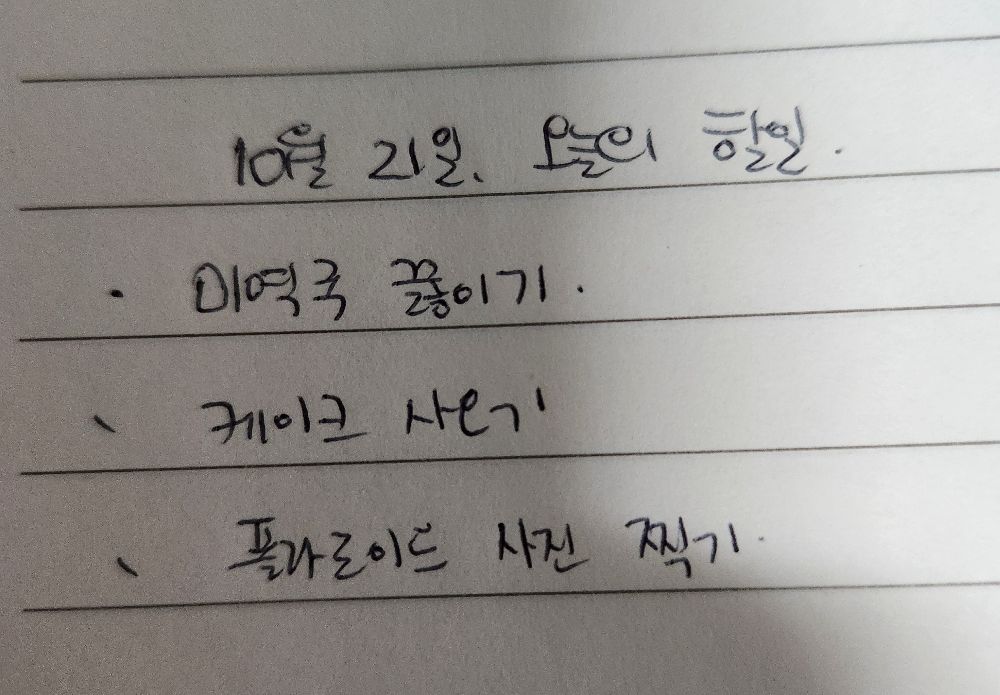 10월 21일. 오늘의 할일.
· 미역국 끓이기.
· 케이크 사오기
· 폴라로이드 사진 찍기.